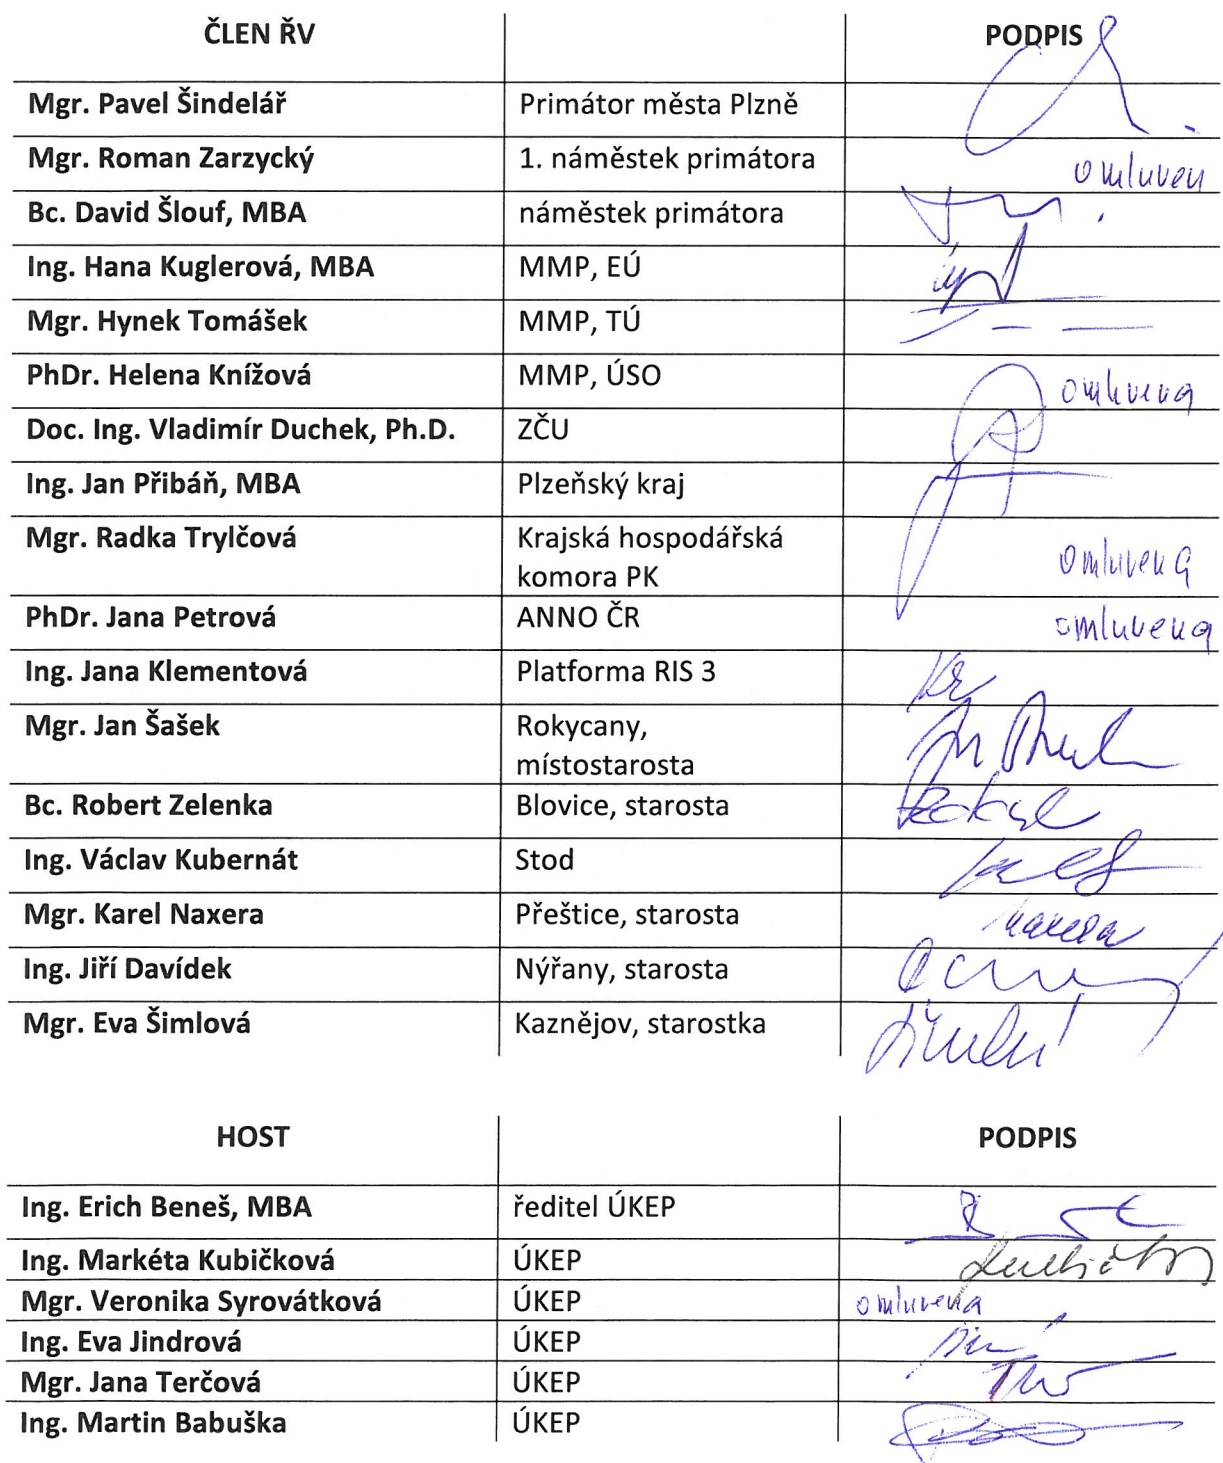 ČLEN ŘV PODPIS
Mgr. Pavel Šindelář Primátor města Plzně
Mgr. Roman Zarzycký 1. náměstek primátora omluven
Bc. David Šlouf, MBA náměstek primátora
Ing. Hana Kuglerová, MBA MMP, EÚ
Mgr. Hynek Tomášek MMP, TÚ
PhDr. Helena Knížová MMP, ÚSO omluvena
Doc. Ing. Vladimír Duchek, Ph.D. ZČU
Ing. Jan Přibáň, MBA Plzeňský kraj
Mgr. Radka Trylčová Krajská hospodářská
komora PK omluvena
PhDr. Jana Petrová ANNO ČR omluvena
Ing. Jana Klementová Platforma RIS 3
Mgr. Jan Šašek Rokycany,
místostarosta
Bc. Robert Zelenka Blovice, starosta
Ing. Václav Kubernát Stod
Mgr. Karel Naxera Přeštice, starosta
Ing. Jiří Davídek Nýřany, starosta
Mgr. Eva Šimlová Kaznějov, starostka
HOST PODPIS
Ing. Erich Beneš, MBA ředitel ÚKEP
Ing. Markéta Kubičková ÚKEP
Mgr. Veronika Syrovátková ÚKEP omluvena
Ing. Eva Jindrová ÚKEP
Mgr. Jana Terčová ÚKEP
Ing. Martin Babuška ÚKEP